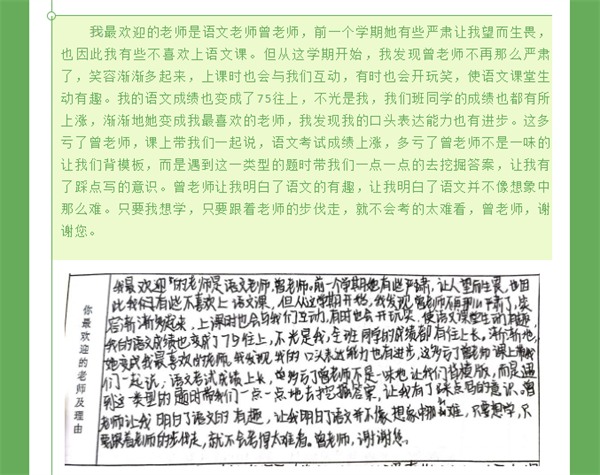 我最欢迎的老师是语文老师曾老师，前一个学期她有些严肃让我望而生畏，
也因此我有些不喜欢上语文课。但从这学期开始，我发现曾老师不再那么严肃
了，笑容渐渐多起来，上课时也会与我们互动，有时也会开玩笑，使语文课堂生
动有趣。我的语文成绩也变成了75往上，不光是我，我们班同学的成绩也都有所
上涨，渐渐地她变成我最喜欢的老师，我发现我的口头表达能力也有进步。这多
亏了曾老师，课上带我们一起说，语文考试成绩上涨，多亏了曾老师不是一味的
让我们背模板，而是遇到这一类型的题时带我们一点一点的去挖掘答案，让我有
了踩点写的意识。曾老师让我明白了语文的有趣，让我明白了语文并不像想象中
那么难。只要我想学，只要跟着老师的步伐走，就不会考的太难看，曾老师，谢
谢您。
你最欢迎的老师及理由
我最欢迎的老师是语文老师,曾老师。前一个学期她有些严肃,让人望而生畏,也因
此我们有些不喜欢上语文课,但从这学期开始,我发现曾老师不再那么严肃了,笑
容渐渐多起来,上课时也会与我们互动,有时也会开玩笑,使语文课堂生动有趣,
我的语文成绩也变成了75往上,不光是我,全班同学的成绩都有往上长。渐渐地,
她变成我最喜欢的老师,我发现我的口头表达能力也有进步,这多亏了曾老师课上带我
们一起说,语文考试成绩上长,多亏了曾老师不是一味地让我们背模版,而是遇
到这一类型的题时带我们一点一点地去挖掘答案,让我有了踩点写的意识,曾
老师让我明白了语文的有趣,让我明白了语文并不像想象中那么难,只要想学,只
要跟着老师的步伐走,就不会考得太难看。曾老师,谢谢您。